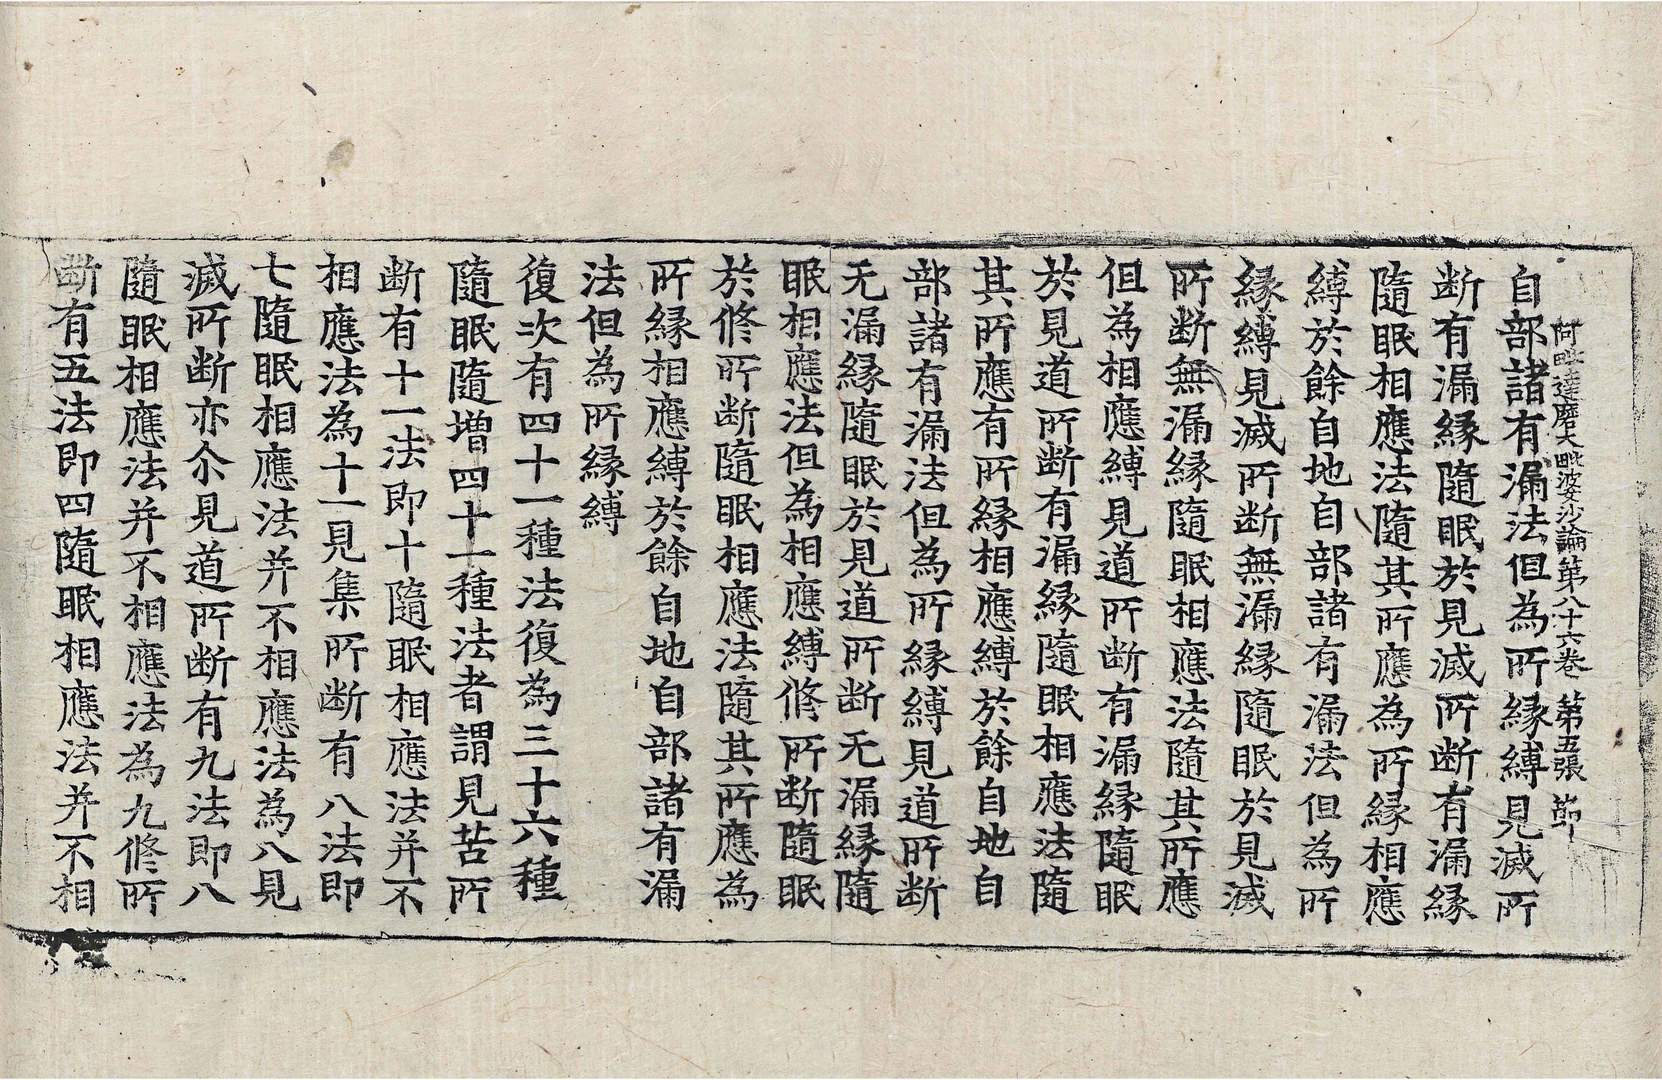 阿毗達磨大毗婆沙論第八十六卷 第五張 節
自部諸有漏法但為所縁縛見滅所
断有漏縁隨眠於見滅所断有漏縁
隨眠相應法隨其所應為所縁相應
縛於餘自地自部諸有漏法但為所
縁縛見滅所断無漏縁隨眠於見滅
所断無漏縁隨眠相應法隨其所應
但為相應縛見道所断有漏縁隨眠
於見道所断有漏縁隨眠相應法隨
其所應有所縁相應縛於餘自地自
部諸有漏法但為所縁縛見道所断
无漏縁隨眠於見道所断无漏縁隨
眠相應法但為相應縛脩所断隨眠
於脩所断隨眠相應法隨其所應為
所縁相應縛於餘自地自部諸有漏
法但為所縁縛
復次有四十一種法復為三十六種
隨眠隨增四十一種法者謂見苦所
断有十一法即十隨眠相應法并不
相應法為十一見集所断有八法即
七隨眠相應法并不相應法為八見
滅所断亦尒見道所断有九法即八
隨眠相應法并不相應法為九脩所
断有五法即四隨眠相應法并不相